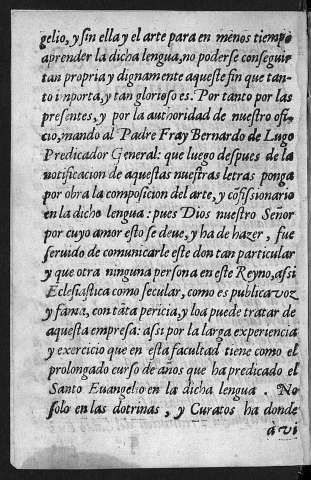 gelio, y sin ella y el arte para en menos tiempo
aprender la dicha lengua, no poderse conseguir
tan propria y dignamente aqueste fin que tan-
to importa, y tan glorioso es. Por tanto por las
presentes, y por la authoridad de nuestro ofi-
cio, mando al Padre Fray Bernardo de Lugo
Predicador General: que luego despues de la
notificacion de aquestas nuestras letras ponga
por obra la composicion del arte, y cõfissionario
en la dicho lengua: pues Dios nuestro Senor
por cuyo amor esto se deve, y ha de hazer, fue
seruido de comunicarle este don tan particular
y que otra ninguna persona en este Reyno, assi
Eclesiastica como secular, como es publica voz
y fama, con tãta pericia, y loa puede tratar de
aquesta empresa: assi por la larga experiencia
y exercicio que en esta facultad tiene como el
prolongado curso de años que ha predicado el
Santo Euangelio en la dicha lengua. No
solo en las dotrinas, y Curatos ha donde
à vi